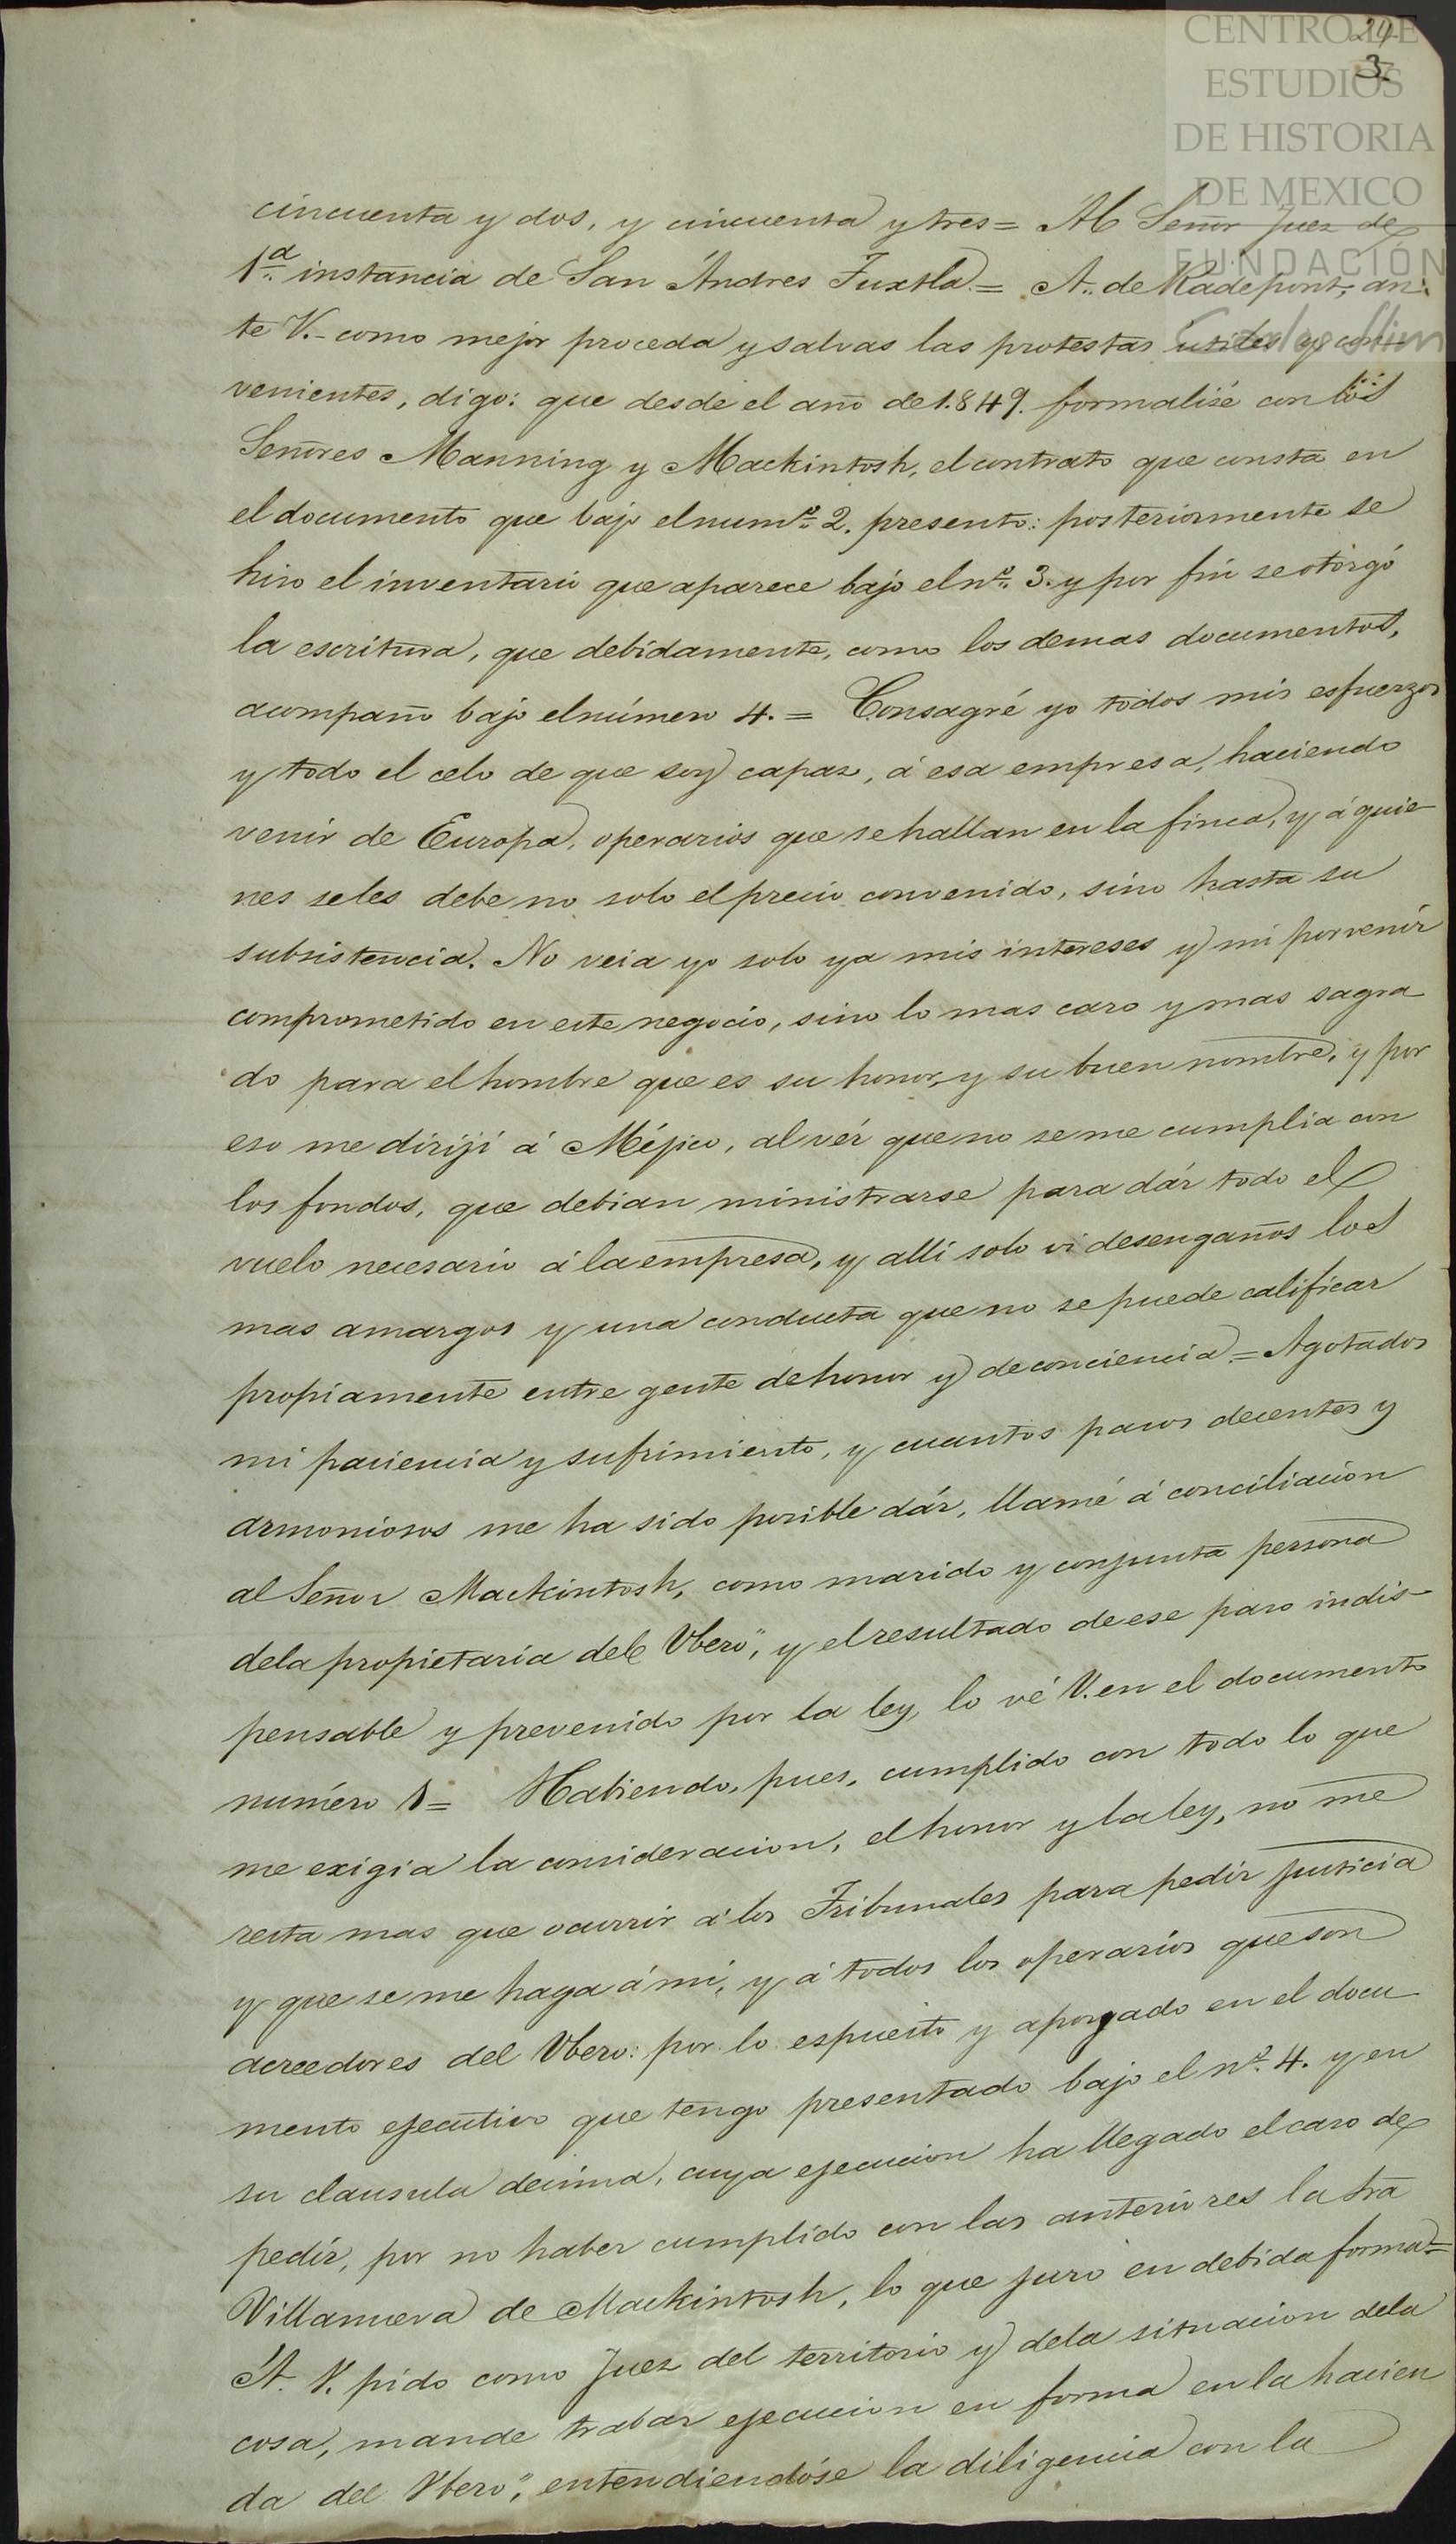 CENTRO DE
ESTUDIOS
DE HISTORIA
DE MEXICO
FUNDACIÓN
Carlos Slim
24
3
cincuenta y dos, y cincuenta y tres= Al Señor Juez de
1ª instancia de San Ándres Tuxtla.= A. de Radepont, an.
te V.- como mejor proceda y salvas las protestas utiles y con-
venientes, digo: que desde el año de 1.849. formalisé con los
Señores Manning y Mackintosh, el contrato que consta en
el documento que bajo el numº 2. presento: posteriormente se
hiso el inventario que aparece bajo el nº. 3. y por fin se otorgó
la escritura, que debidamente, como los demas documentos,
acompaño bajo el número 4.= Consagré yo todos mis esfuerzos
y todo el celo de que soy capaz, á esa empresa, haciendo
venir de Europa, operarios que se hallan en la finca, y á quie-
nes seles debe no solo el precio convenido, sino hasta su
subsistencia. No veia yo solo ya mis intereses y mi porvenir
comprometido en este negocio, sino lo mas caro y mas sagra
do para el hombre que es su honor, y su buen nombre, y por
eso me dirijí á Méjico, al vér que no se me cumplia con
los fondos, que debian ministrarse para dár todo el
vuelo necesario á la empresa, y alli solo vi desengaños los
mas amargos y una conducta que no se puede calificar
propiamente entre gente de honor y de conciencia.= Agotados
mi paciencia y sufrimiento, y cuantos pasos decentes y
armoniosos me ha sido posible dár, llamé á conciliacion
al Señor Mackintosh, como marido y conjunta persona
dela propietaria del "Vbero", y el resultado de ese paso indis-
pensable y prevenido por la ley, lo vé V. en el documento
número 1= Habiendo, pues, cumplido con todo lo que
me exigia la consideracion, el honor y la ley, no me
resta mas que ocurrir á los Tribunales para pedir justicia
y que se me haga á mi, y á todos los operarios que son
acreedores del Vbero: por lo espuesto y apoyado en el docu
mento ejecutivo que tengo presentado bajo el nº. 4. y en
su clausula decima, cuya ejecucion ha llegado el caso de
pedir, por no haber cumplido con las anteriores la Sra
Villanueva de Mackintosh, lo que juro en debida forma=
Á. V. pido como Juez del territorio y dela situacion dela
cosa, mande trabar ejecucion en forma en la hacien
da del Vbero", entendiendóse la diligencia con la